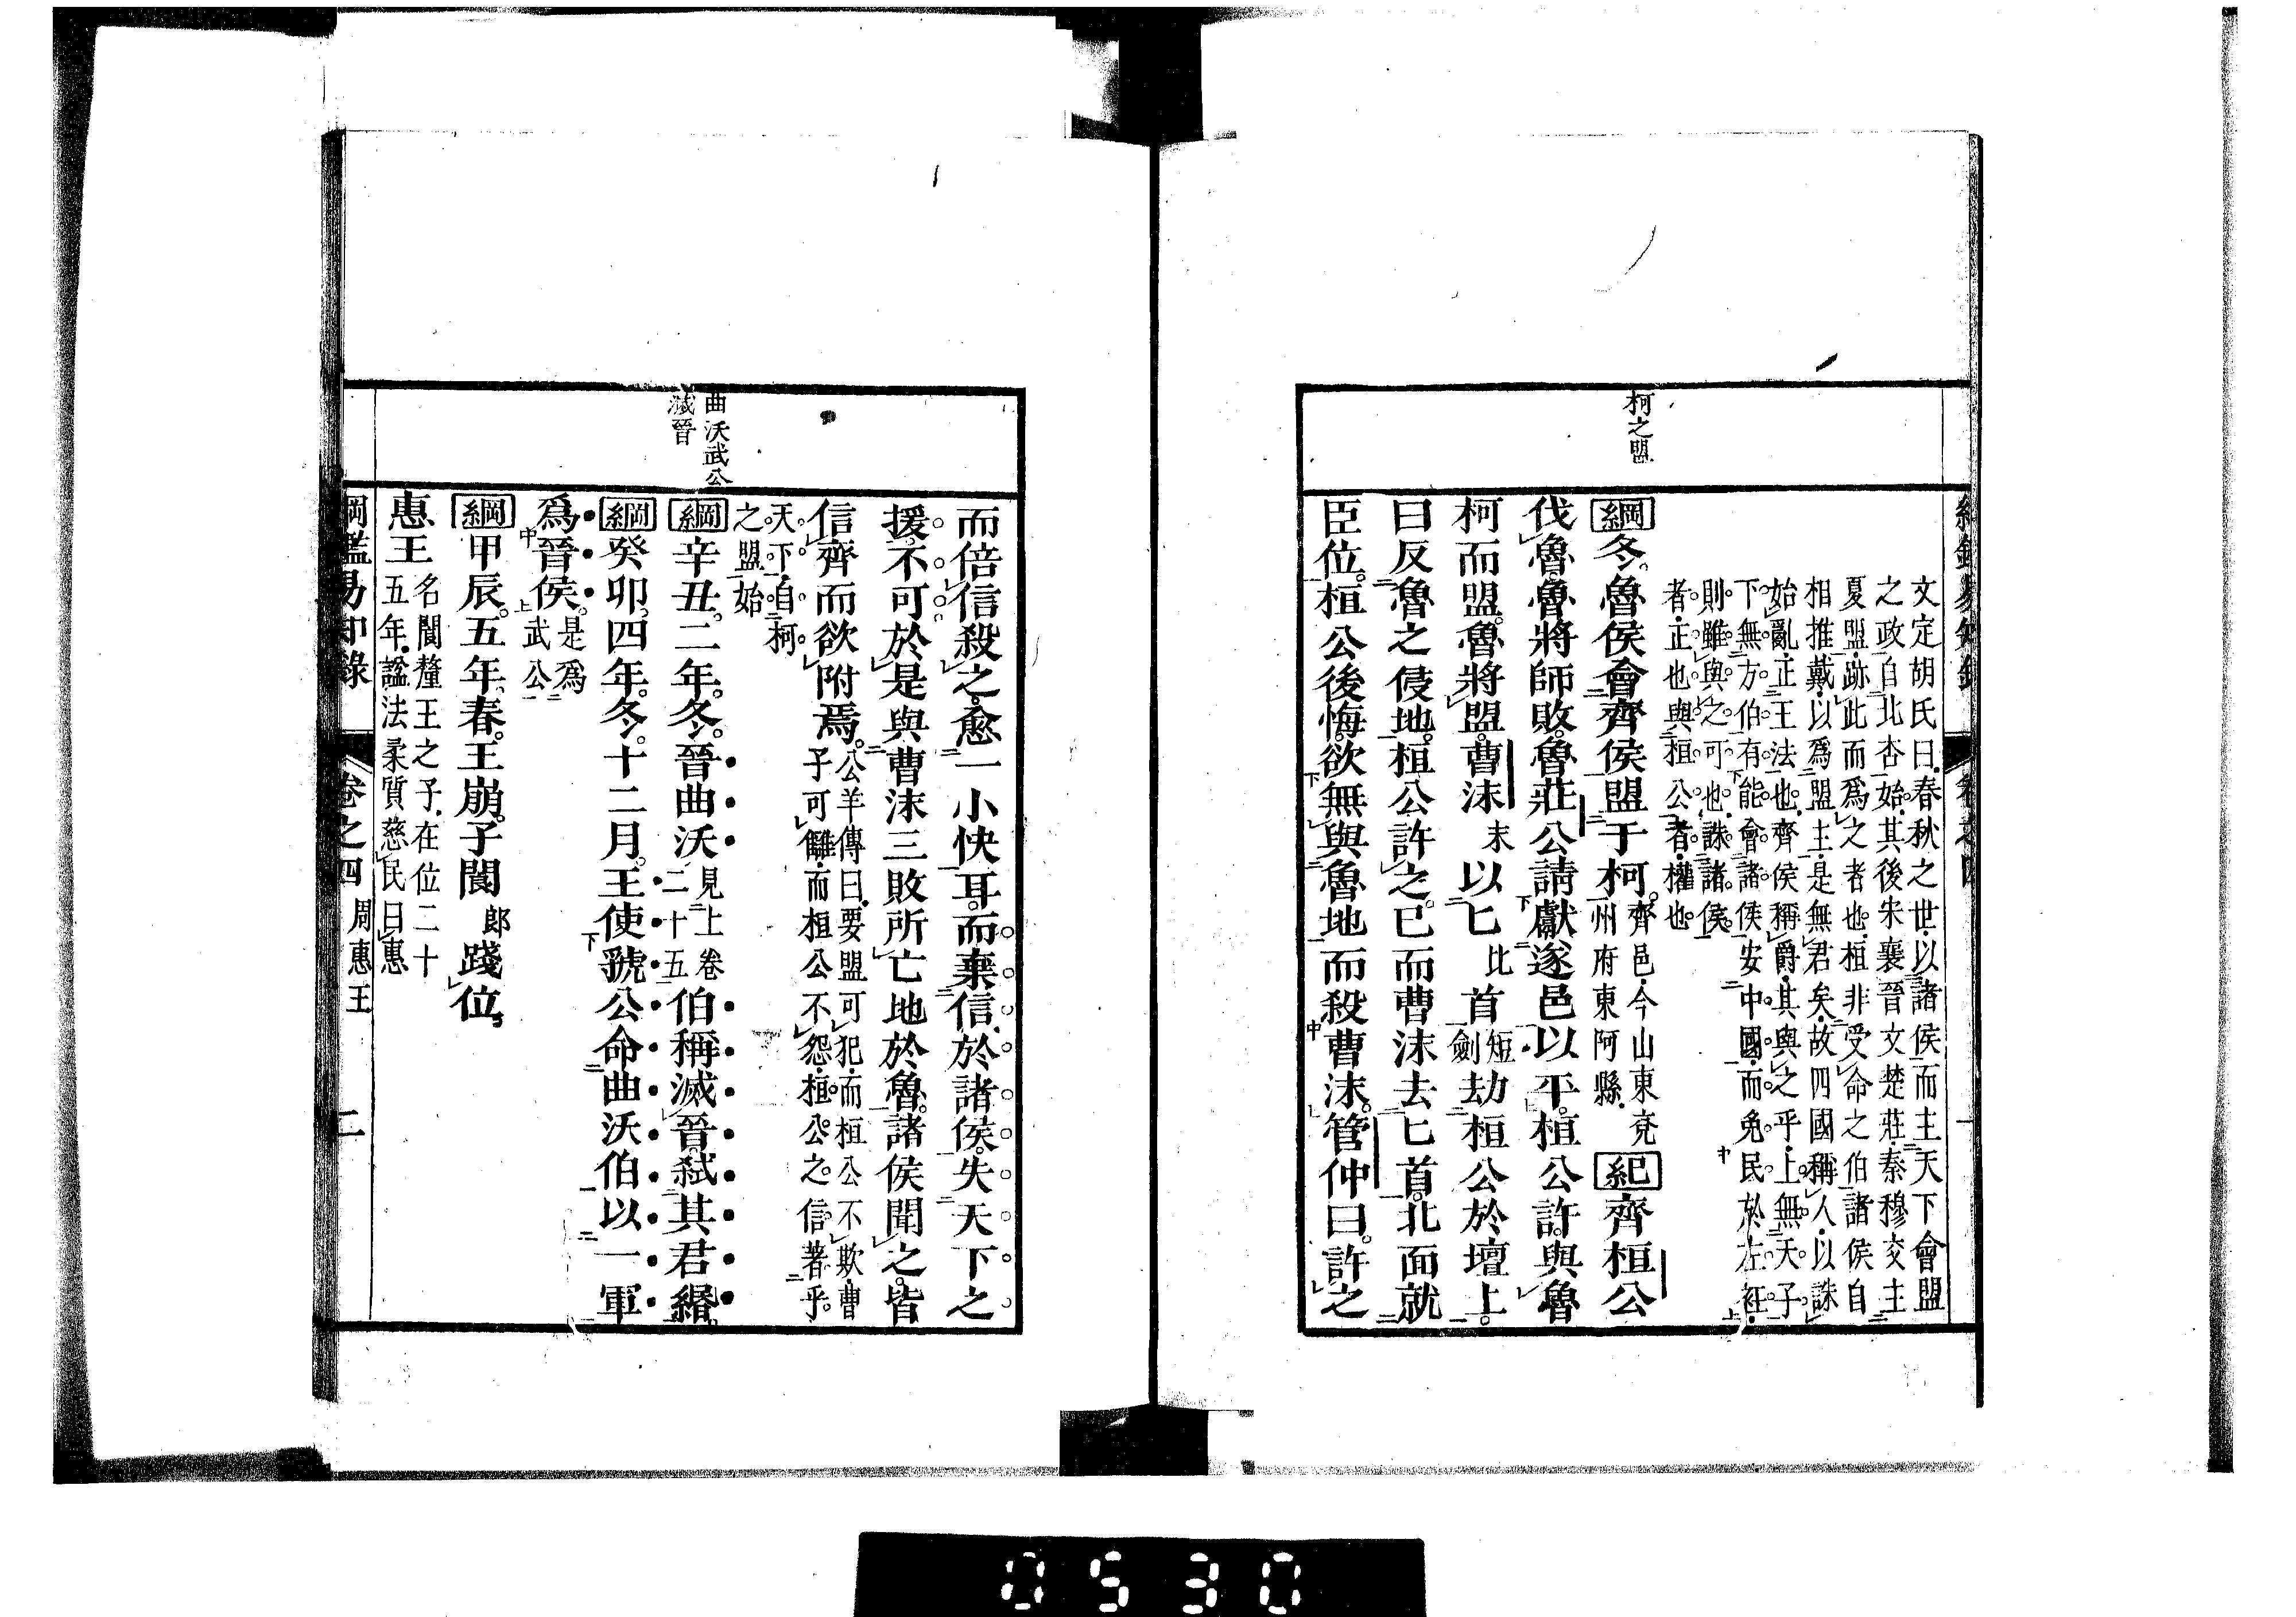 柯之盟
文定胡氏曰春秋之世以諸侯而主天下會盟
之政自北杏始其後宋襄晉文楚莊秦穆交主
夏盟跡此而爲之者也桓非受命之伯諸侯自
相推戴以爲盟主是無君矣故四國稱人以誅
始亂正王法也齊侯稱爵其與之乎上無天子
下無方伯有能會諸侯安中國而免民於左衽
則雖與之可也誅諸侯
者正也與桓公者權也
綱冬魯侯會齊侯盟于柯齊邑今山東兗
州府東阿縣紀齊桓公
伐魯魯將師敗魯莊公請獻遂邑以平桓公許與魯
柯而盟魯將盟曹沫末以匕比首短
劍劫桓公於壇上
曰反魯之侵地桓公許之已而曹沫去匕首北面就
臣位桓公後悔欲無與魯地而殺曹沫管仲曰許之
曲沃武公
滅晉
而倍信殺之愈一小快耳而棄信於諸侯失天下之
援不可於是與曹沫三敗所亡地於魯諸侯聞之皆
信齊而欲附焉公羊傳曰要盟可犯而桓公不欺曹
子可讎而桓公不怨桓公之信著乎
天下自柯
之盟始
綱辛丑二年冬晉曲沃見上卷
二十五伯稱滅晉弒其君緡
綱癸卯四年冬十二月王使虢公命曲沃伯以一軍
爲晉侯是爲
武公
綱甲辰五年春王崩子閬郎踐位
惠王名閬釐王之子在位二十
五年諡法柔質慈民曰惠
綱鑑易知錄 卷之四 周惠王 二